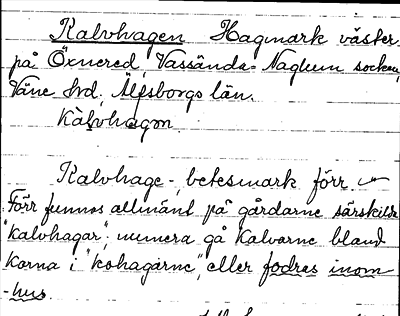 Kalvhagen Hagmark väster
på Öxnered, Vassända-Naglum socken,
Väne hd, Älfsborgs län.
Kàlvhagɷn
Kalvhage-, betesmark förr
Förr funnos allmänt på gårdarne särskilda
"kalvhagar", numera gå kalvarne bland
korna i "kohagarne", eller fodras inom-
-hus